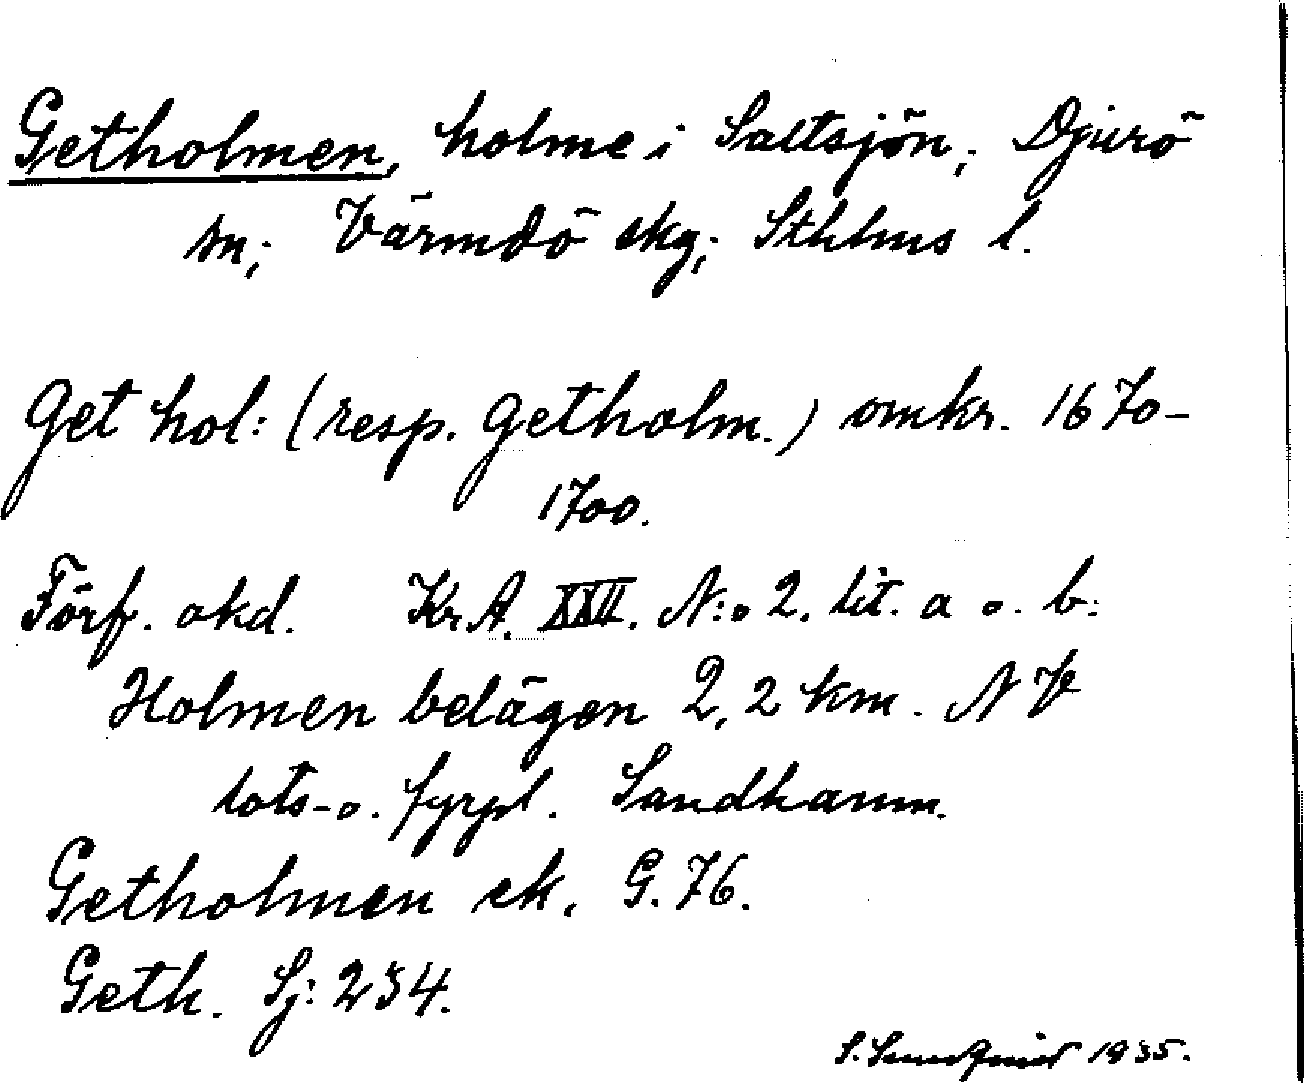 Getholmen, holme i Saltsjön; Djurö
sn; Värmdö skg; Sthlms l.
Get hol: (resp. Getholm.) omkr. 1670-
1700.
Förf. okd. Kr.A. XXII. N:o 2. lit. a o. b:
Holmen belägen 2,2 km. NV
lots- o. fyrpl. Sandhamn.
Getholmen ek. G.76.
Geth. Sj: 234.
S. Sundquist 1935.